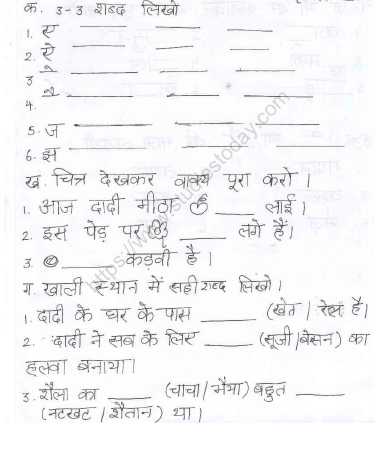 क. 3-3 शब्द लिखो
1. स ______ ______ ______
2. ऐ ______ ______ ______
3 े ______ ______ ______
4. ै ______ ______ ______
5. ज ______ ______
6. झ ______ ______
ख. चित्र देखकर वाक्य पूरा करो।
1. आज दादी मीठा ______ लाई।
2. इस पेड़ पर ______ लगे हैं।
3. ______ कड़वी है।
ग. खाली स्थान में सही शब्द लिखो।
1. दादी के घर के पास ______ (खेत / रेल है।
2. दादी ने सब के लिए ______ (सूजी/बेसन) का
हलवा बनाया।
3. शैला का ______ (चाचा/भैया) बहुत ______
(नटखट / शैतान) था।
https://www.studiestoday.com